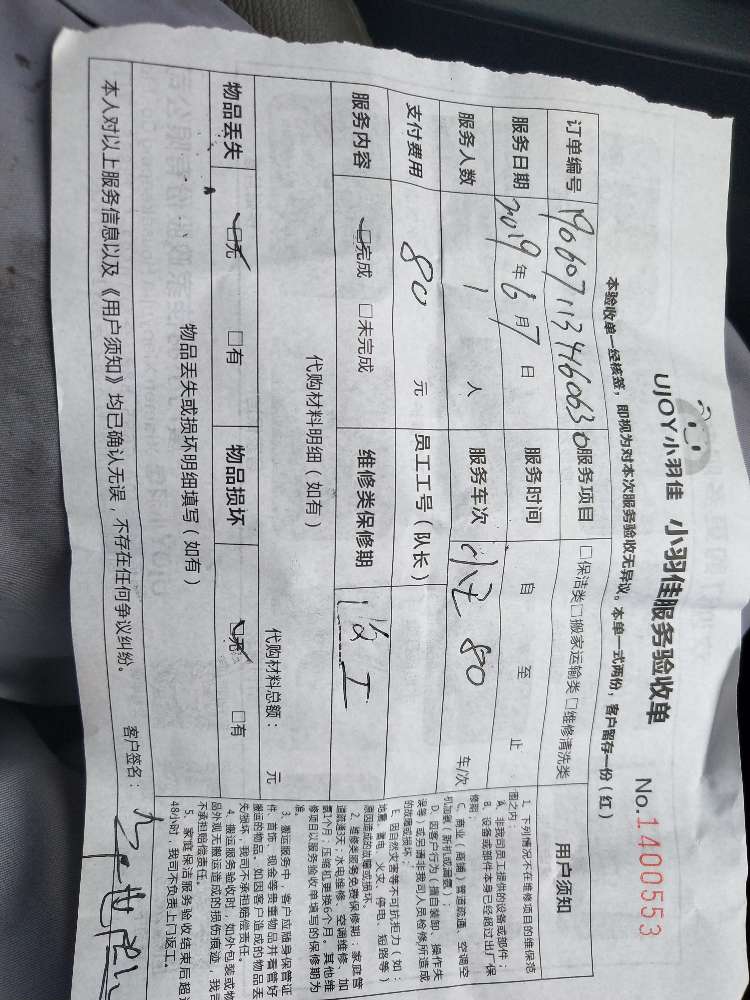 UJOY小羽佳 小羽佳服务验收单 No.1400553
本验收单一经核签，即视为对本次服务验收无异议。本单一式两份，客户留存一份（红）
订单编号 服务项目 □保洁类□搬家运输类□维修清洗类
服务日期 2019年6月7日 服务时间 自 至 止
服务人数 1 人 服务车次 80 车/次
支付费用 80 元 员工工号（队长）
服务内容 □完成 □未完成 维修类保修期
代购材料明细（如有） 代购材料总额： 元
物品丢失 □无 □有 物品损坏 □无 □有
物品丢失或损坏明细填写（如有）
本人对以上服务信息以及《用户须知》均已确认无误，不存在任何争议纠纷。 客户签名：
用户须知
1、下列情况不在维修项目的维保范
围之内：
A、非我司员工提供的设备或部件；
B、设备或部件本身已经超过出厂保
修期；
C、商业（商铺）管道疏通、空调空
机加氨（新机或漏氨）；
D、因客户行为（擅自装卸、操作失
误等）或邀请非我司人员检修所造成
的故障或损坏；
E、因自然灾害等不可抗拒力（如：
地震、雷电、火灾、停电、短路等）
原因造成的故障或损坏。
2、维修类服务免费保修期：家庭管
道疏通3天；水电维修、空调维修、加
氨1个月；压缩机更换6个月。其他维
修项目以服务验收单填写的保修期为
准。
3、搬运服务中，客户应随身保管证
件、首饰、现金等贵重物品并看管好
搬运的物品。如因客户造成的物品丢
失损坏，我司不承担赔偿责任。
4、搬运服务验收时，如外包装或物
品外观无搬运造成的损伤痕迹，我司
不承担赔偿责任。
5、家庭保洁服务验收结束后超过
48小时，我司不负责上门返工。